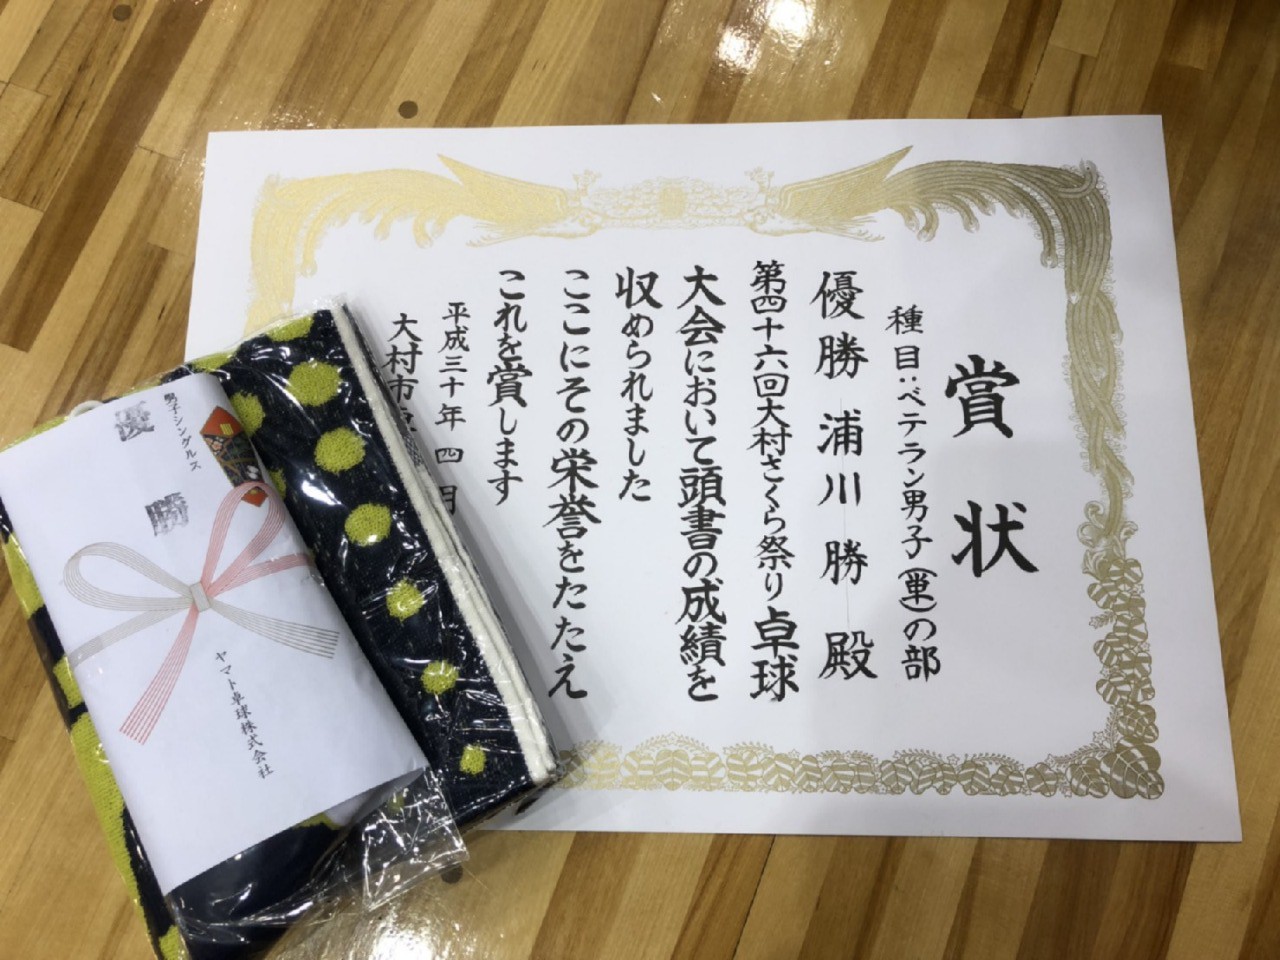 賞状
種目:ベテラン男子(単)の部
優勝 浦川 勝 殿
第四十六回大村さくら祭り卓球
大会において頭書の成績を
収められました
ここにその栄誉をたたえ
これを賞します
平成三十年 四 月
大村市卓
男子シングルス
優勝
ヤマト卓球株式会社